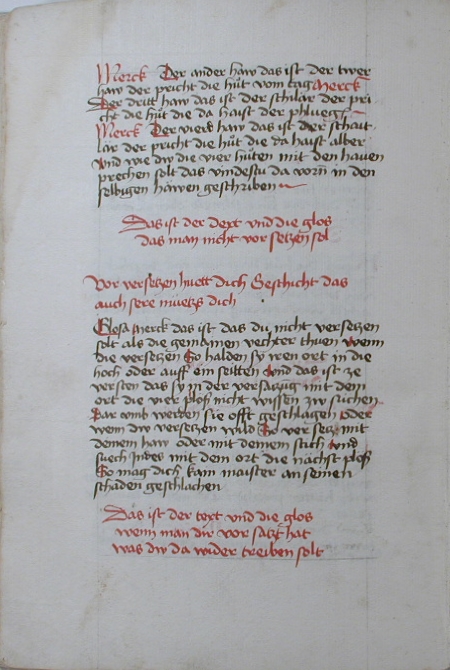 Merck Der ander haw das ist der twer
haw der pricht die hut vom tag Merck
Der dritt haw das ist der schilar der pri
cht die hut die da haist der phlueg
Merck Der vierd haw das ist der schait
lar der pricht die hut die da haist alber
Und wie dw die vier hutten mit den hauen
prechen solt das vindestu da vorn in den
selbigen hawen geschriben
Das ist der text vnd die glos
das man nicht vor setzen sol
Vor versetzen huett dich Geschicht das
auch sere muet dich
Glosa Merck das ist das du nicht versetzen
solt als die gemainen vechter thuen wenn
die versetzen So halden sy iren ort in die
hoch oder auff ein seitten Und das ist ze
versten das sy in der versatzug mit dem
ort die vier plos nicht wissen zw suchen
Dar vmb werden sie offt geschlagen Oder
wenn dw versetzen wild So versetz mit
deinem haw oder mit deinem stich Vnd
suech Indes mit dem ort die nachst plos
So mag dich kain maister an seinen
schaden geschlachen
Das ist der text vnd die glos
wenn man dir vor satzt hat
was dw da wider treiben solt